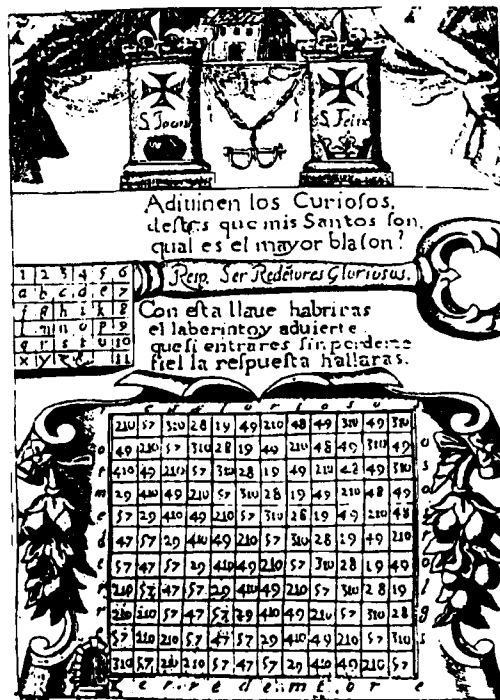 S. Felix
Adiuinen los Curiosos,
destos que mis Santos son,
qual es el mayor blason?
Resp. Ser Redētores Gloriosos.
Con esta llave habriras
el laberinto y aduierte
que si entrares sin perderte
fiel la respuesta hallaras.
1 2 3 4 5 6
a b c d e 7
f g h i k 8
l m n o p 9
q r s t u 10
x y z 11
210 57 310 28 19 49 210 48 49 310 49 310
49 210 57 310 28 19 49 210 48 49 310 49
410 49 210 57 310 28 19 49 210 48 49 310
29 410 49 210 57 310 28 19 49 210 48 49
57 29 410 49 210 57 310 28 19 49 210 48
47 57 29 410 49 210 57 310 28 19 49 210
57 47 57 29 410 49 210 57 310 28 19 49
210 57 47 57 29 410 49 210 57 310 28 19
210 210 57 47 57 29 410 49 210 57 310 28
57 210 210 57 47 57 29 410 49 210 57 310
310 57 210 210 57 47 57 29 410 49 210 57
e r r e d e m t o r e